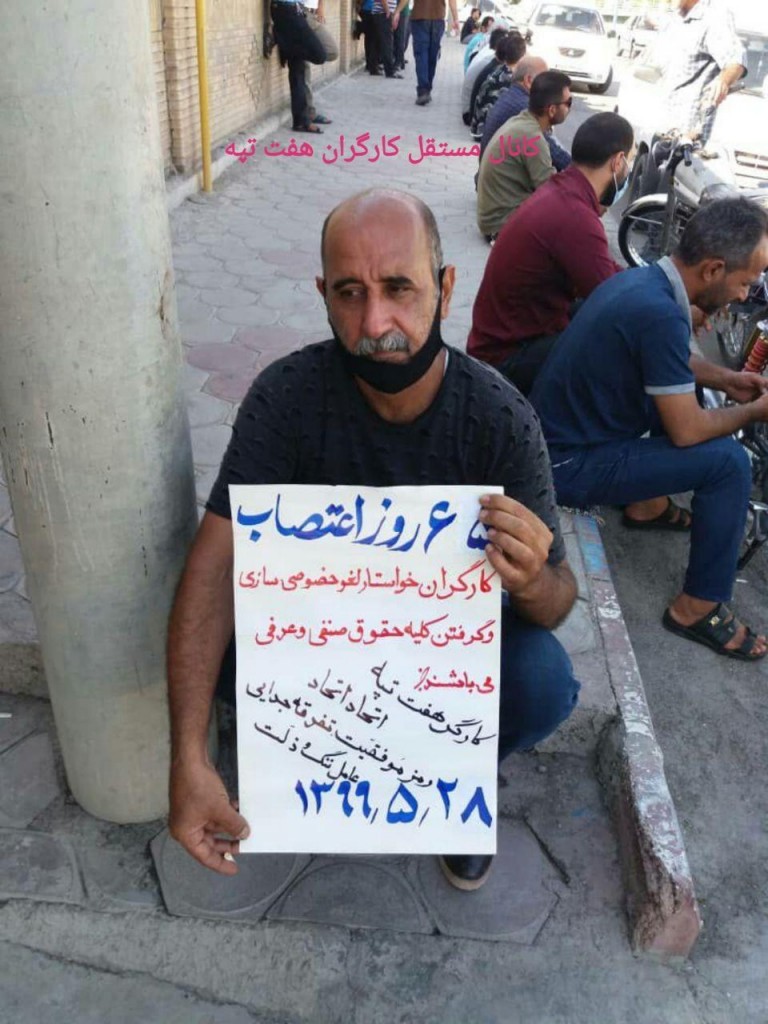 کانال مستقل کارگران هفت تپه
۶۵ روز اعتصاب
کارگران خواستار لغو خصوصی سازی
و گرفتن کلیه حقوق صنفی و عرفی
می باشند
کارگر هفت تپه
اتحاد اتحاد
رمز موفقیت، تفرقه جدایی
عامل ننگ و ذلت
۱۳۹۹٫۵٫۲۸